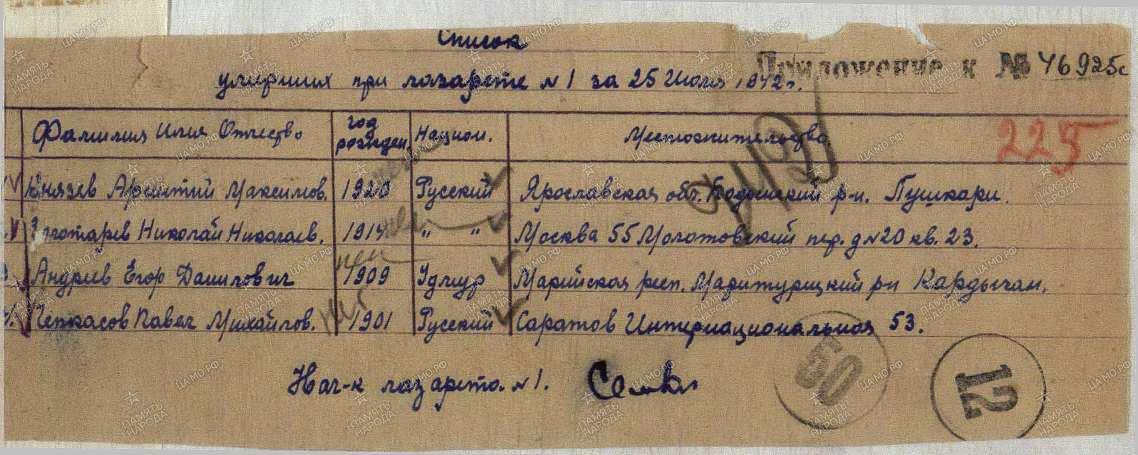 Список
умерших при лазарете №1 за 25 Июля 1942г.
Приложение к № 46925с
Фамилия Имя Отчество год рожден. Национ. Местожительство
225
Князев Арсентий Максимов. 1920 Русский Ярославская обл. р-н. Пушкари.
Золотарев Николай Николаев. 1914 нет " " Москва 55 Молотовский пер. д №20 кв. 23.
Андреев Егор Данилович нет 1909 Удмур Марийская респ. Маритурецкий р-н
Черкасов Павел Михайлов. нет 1901 Русский Саратов Интернациональная 53.
Нач-к лазарета №1.
50
12